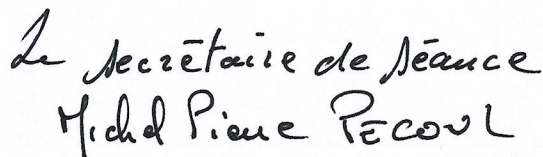 Le secrétaire de séance
Michel Pierre PECOUL